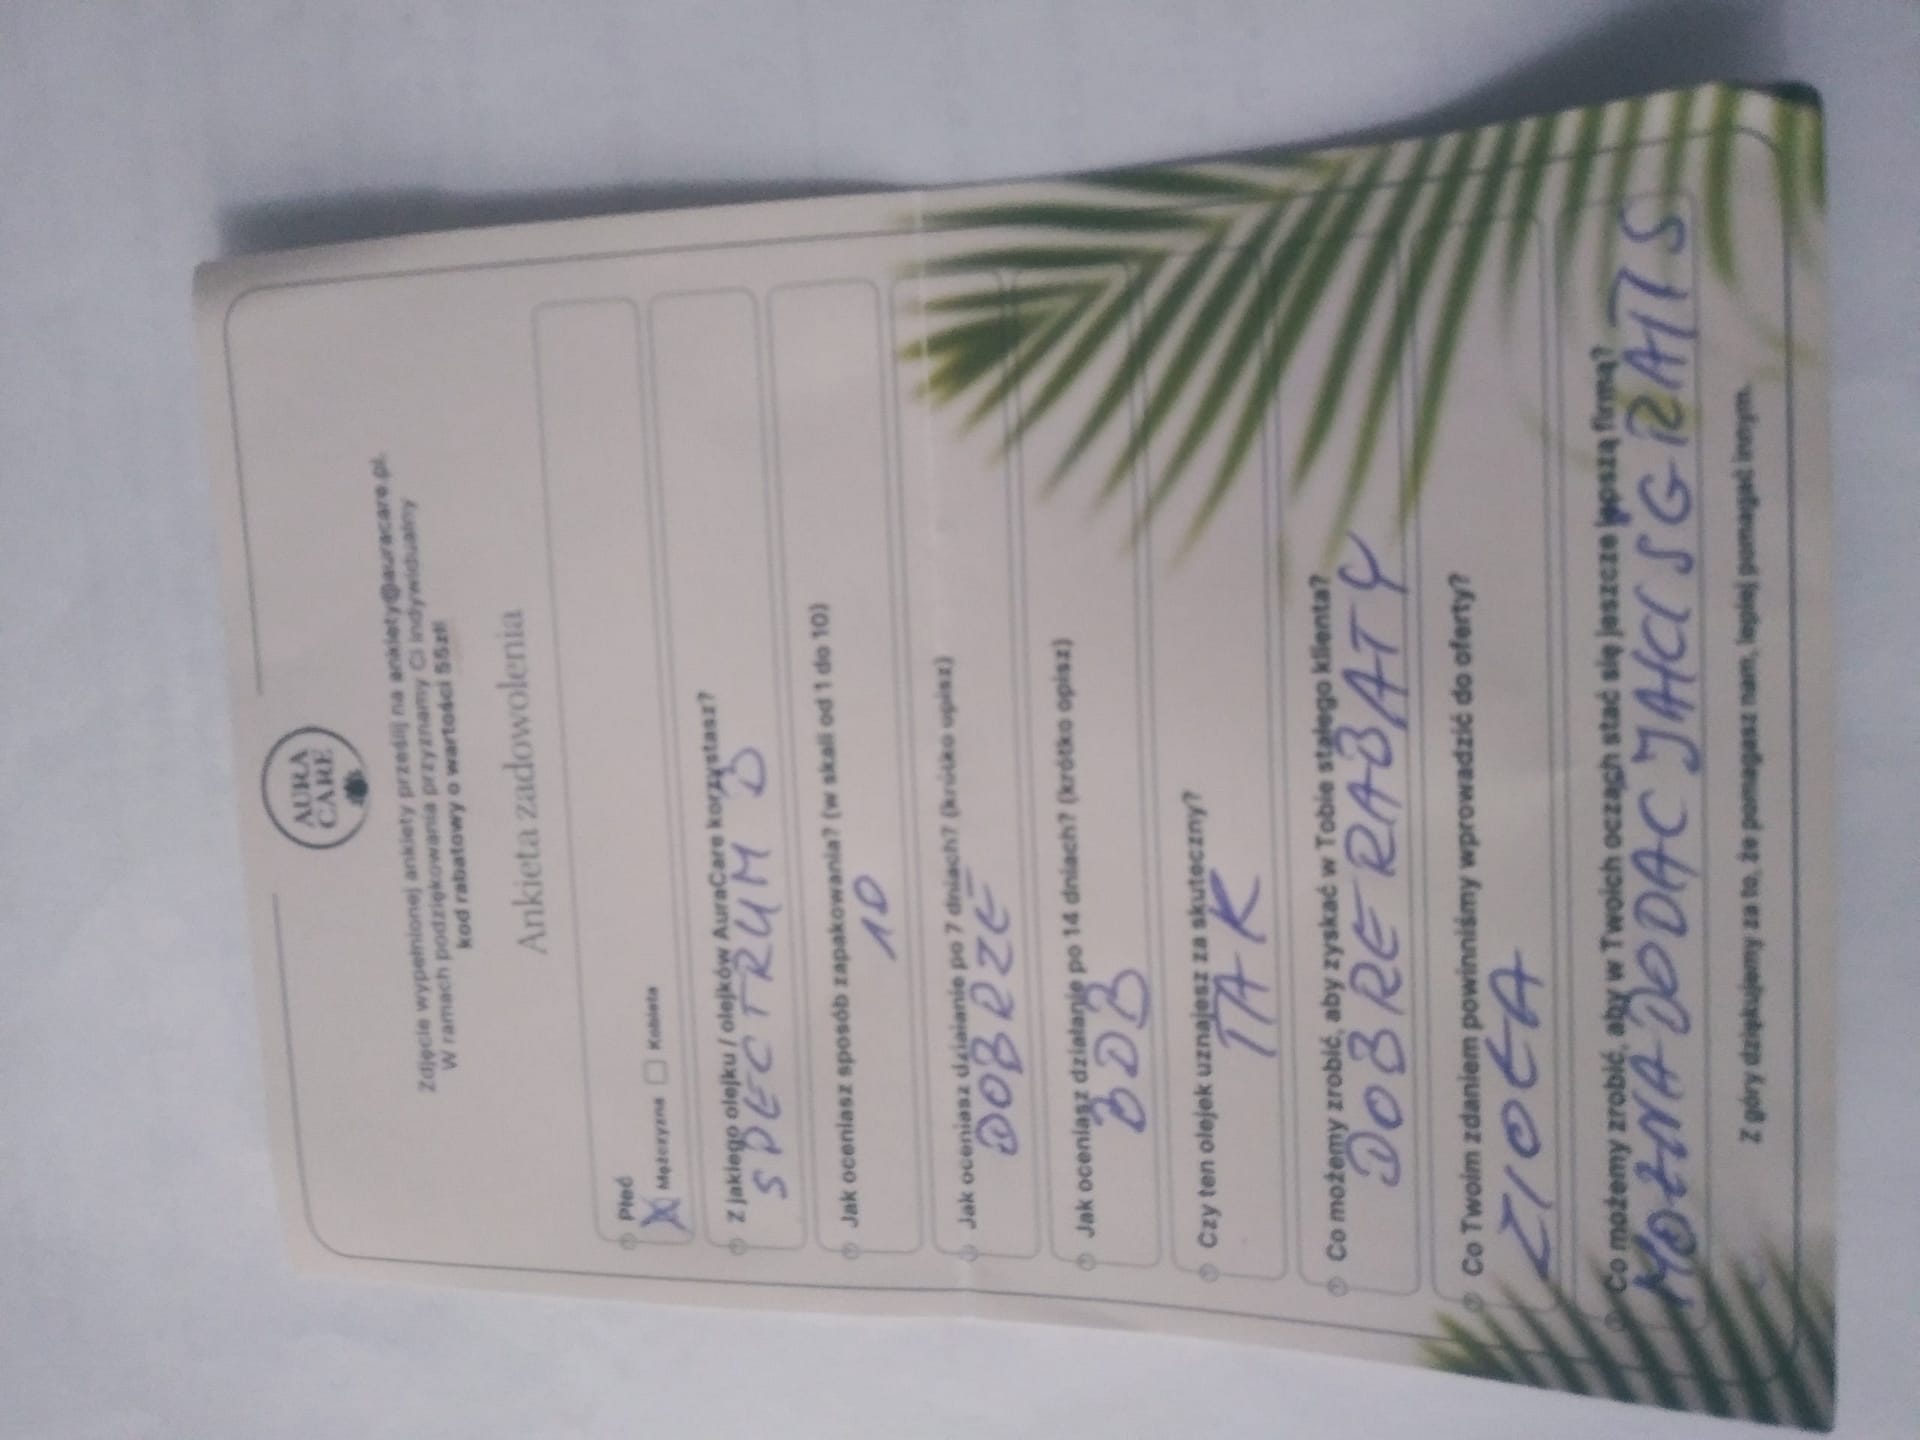 AURA
CARE
Zdjęcie wypełnionej ankiety prześlij na ankiety@auracare.pl.
W ramach podziękowania przyznamy Ci indywidualny
kod rabatowy o wartości 55zł!
Ankieta zadowolenia
Płeć
X Mężczyzna □ Kobieta
Z jakiego olejku / olejków AuraCare korzystasz?
SPECTRUM B
Jak oceniasz sposób zapakowania? (w skali od 1 do 10)
10
Jak oceniasz działanie po 7 dniach? (krótko opisz)
DOBRZE
Jak oceniasz działanie po 14 dniach? (krótko opisz)
BDB
Czy ten olejek uznajesz za skuteczny?
TAK
Co możemy zrobić, aby zyskać w Tobie stałego klienta?
DOBRE RABATY
Co Twoim zdaniem powinniśmy wprowadzić do oferty?
ZIOŁA
Co możemy zrobić, aby w Twoich oczach stać się jeszcze lepszą firmą?
MOŻNA DODAC JAHCIS GRATIS
Z góry dziękujemy za to, że pomagasz nam, lepiej pomagać innym.